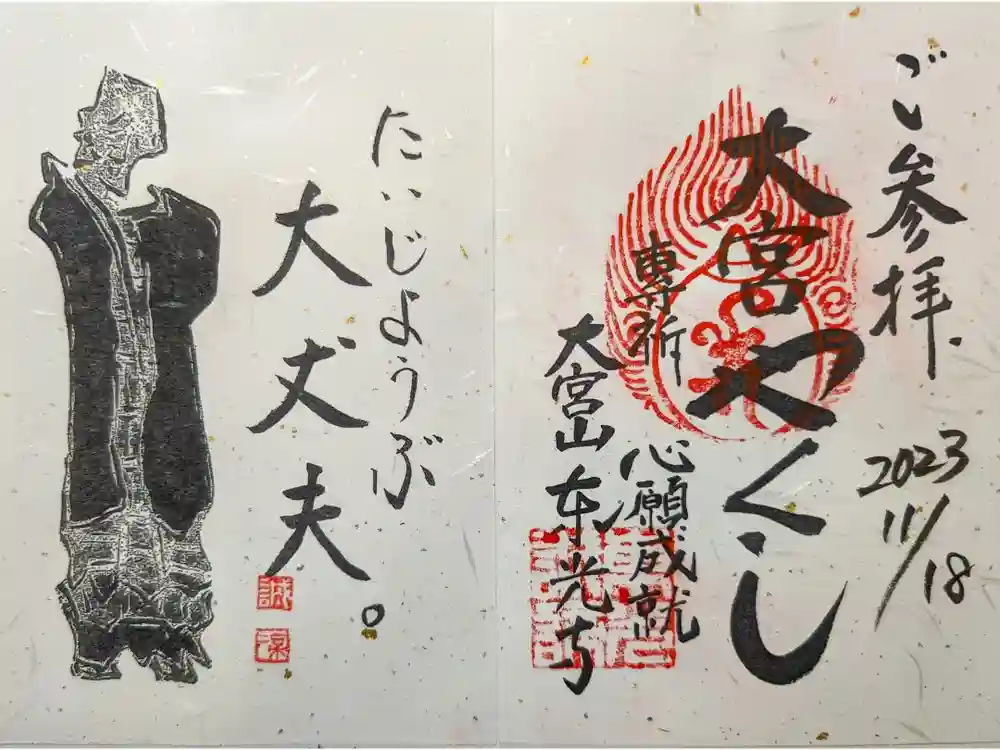 ご参拝
2023
11/18
大宮やくし
専祈
心願成就
大宮山東光寺
たいじょうぶ
大丈夫。
誠